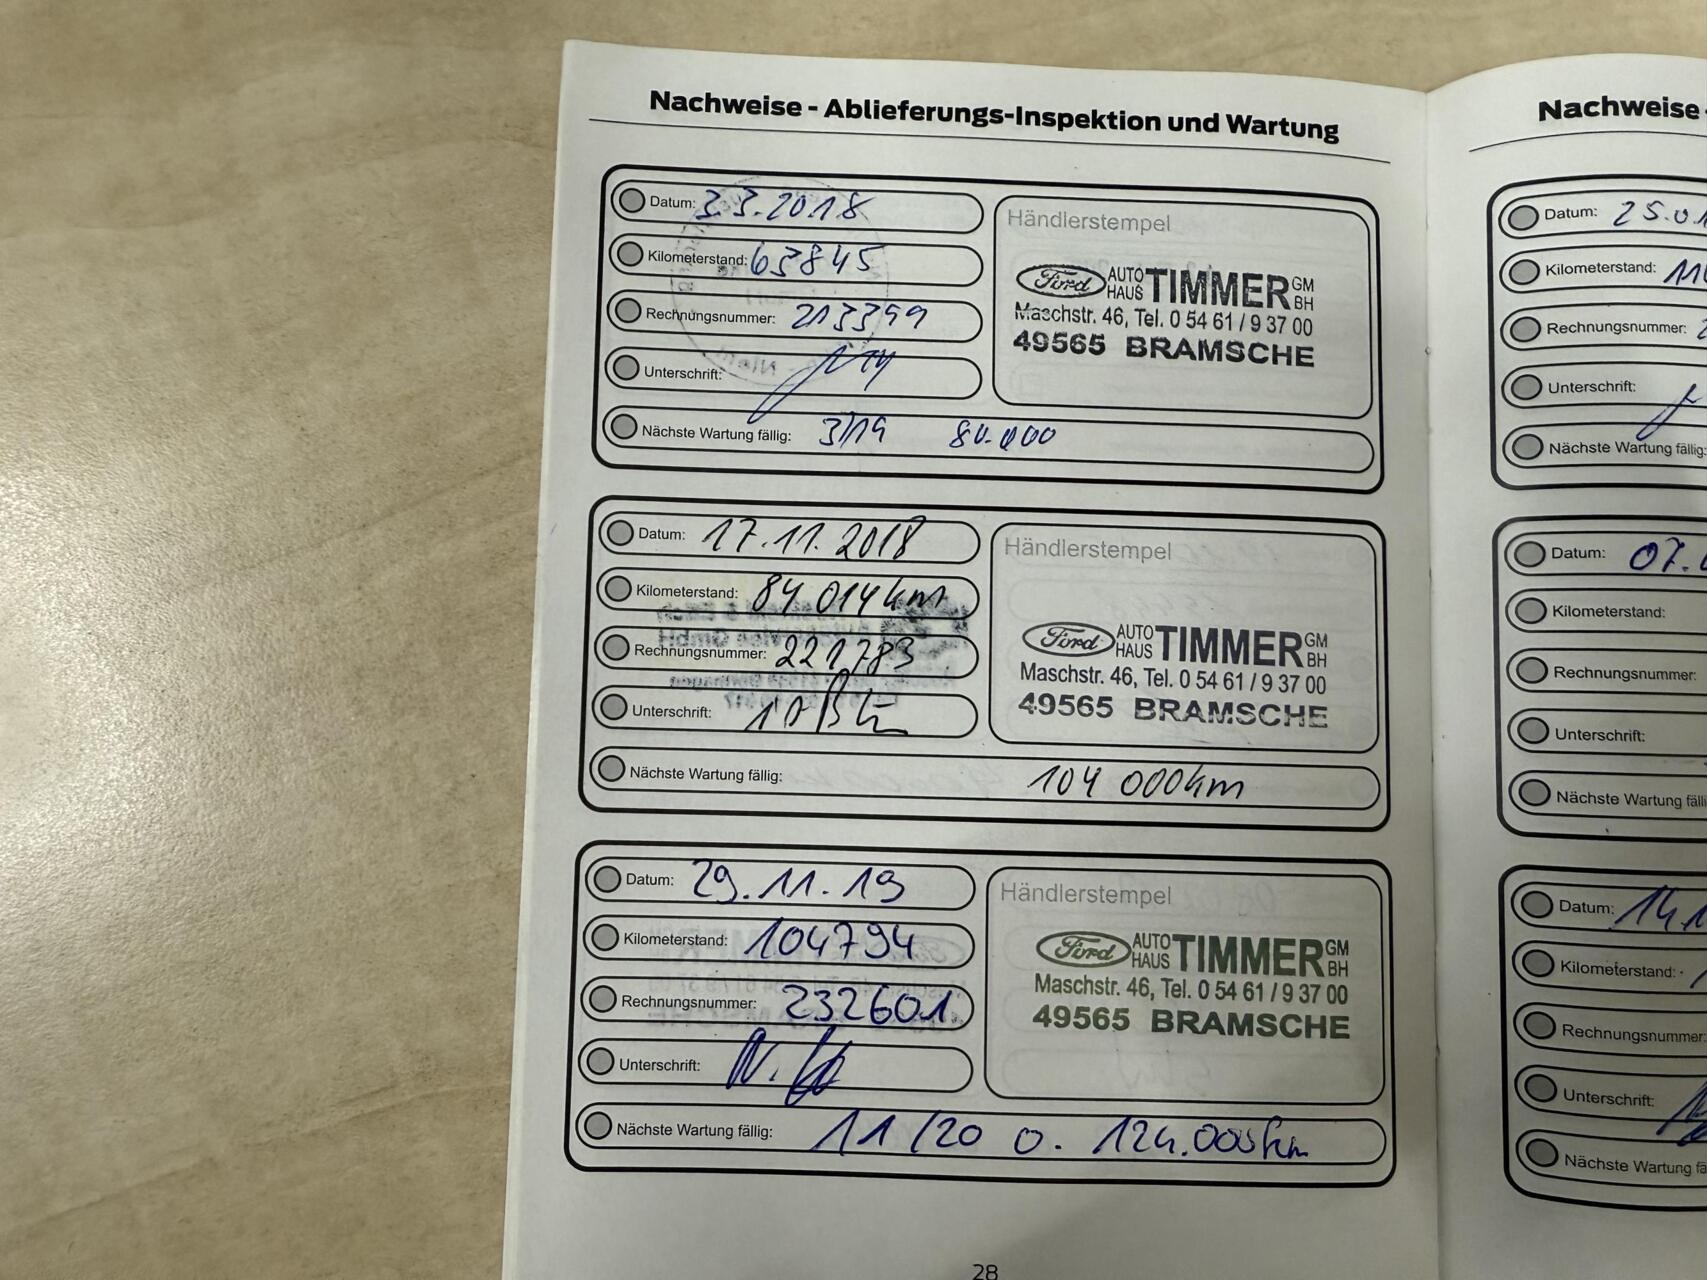 Nachweise - Ablieferungs-Inspektion und Wartung
Datum: 3.3.2018
Kilometerstand: 63845
Rechnungsnummer: 213399
Unterschrift:
Nächste Wartung fällig: 3/19 80.000
Händlerstempel
Ford AUTO HAUS TIMMER GM BH
Maschstr. 46, Tel. 0 54 61 / 9 37 00
49565 BRAMSCHE
Datum: 17.11.2018
Kilometerstand: 84 014 km
Rechnungsnummer: 221783
Unterschrift:
Nächste Wartung fällig: 104 000km
Händlerstempel
Ford AUTO HAUS TIMMER GM BH
Maschstr. 46, Tel. 0 54 61 / 9 37 00
49565 BRAMSCHE
Datum: 29.11.19
Kilometerstand: 104794
Rechnungsnummer: 232601
Unterschrift:
Nächste Wartung fällig: 11/20 o. 124.000km
Händlerstempel
Ford AUTO HAUS TIMMER GM BH
Maschstr. 46, Tel. 0 54 61 / 9 37 00
49565 BRAMSCHE
28
Nachweise -
Datum: 25.01
Kilometerstand: 11
Rechnungsnummer:
Unterschrift:
Nächste Wartung fällig:
Datum: 07.
Kilometerstand:
Rechnungsnummer:
Unterschrift:
Nächste Wartung fälli
Datum: 14.1
Kilometerstand:
Rechnungsnummer:
Unterschrift:
Nächste Wartung fä